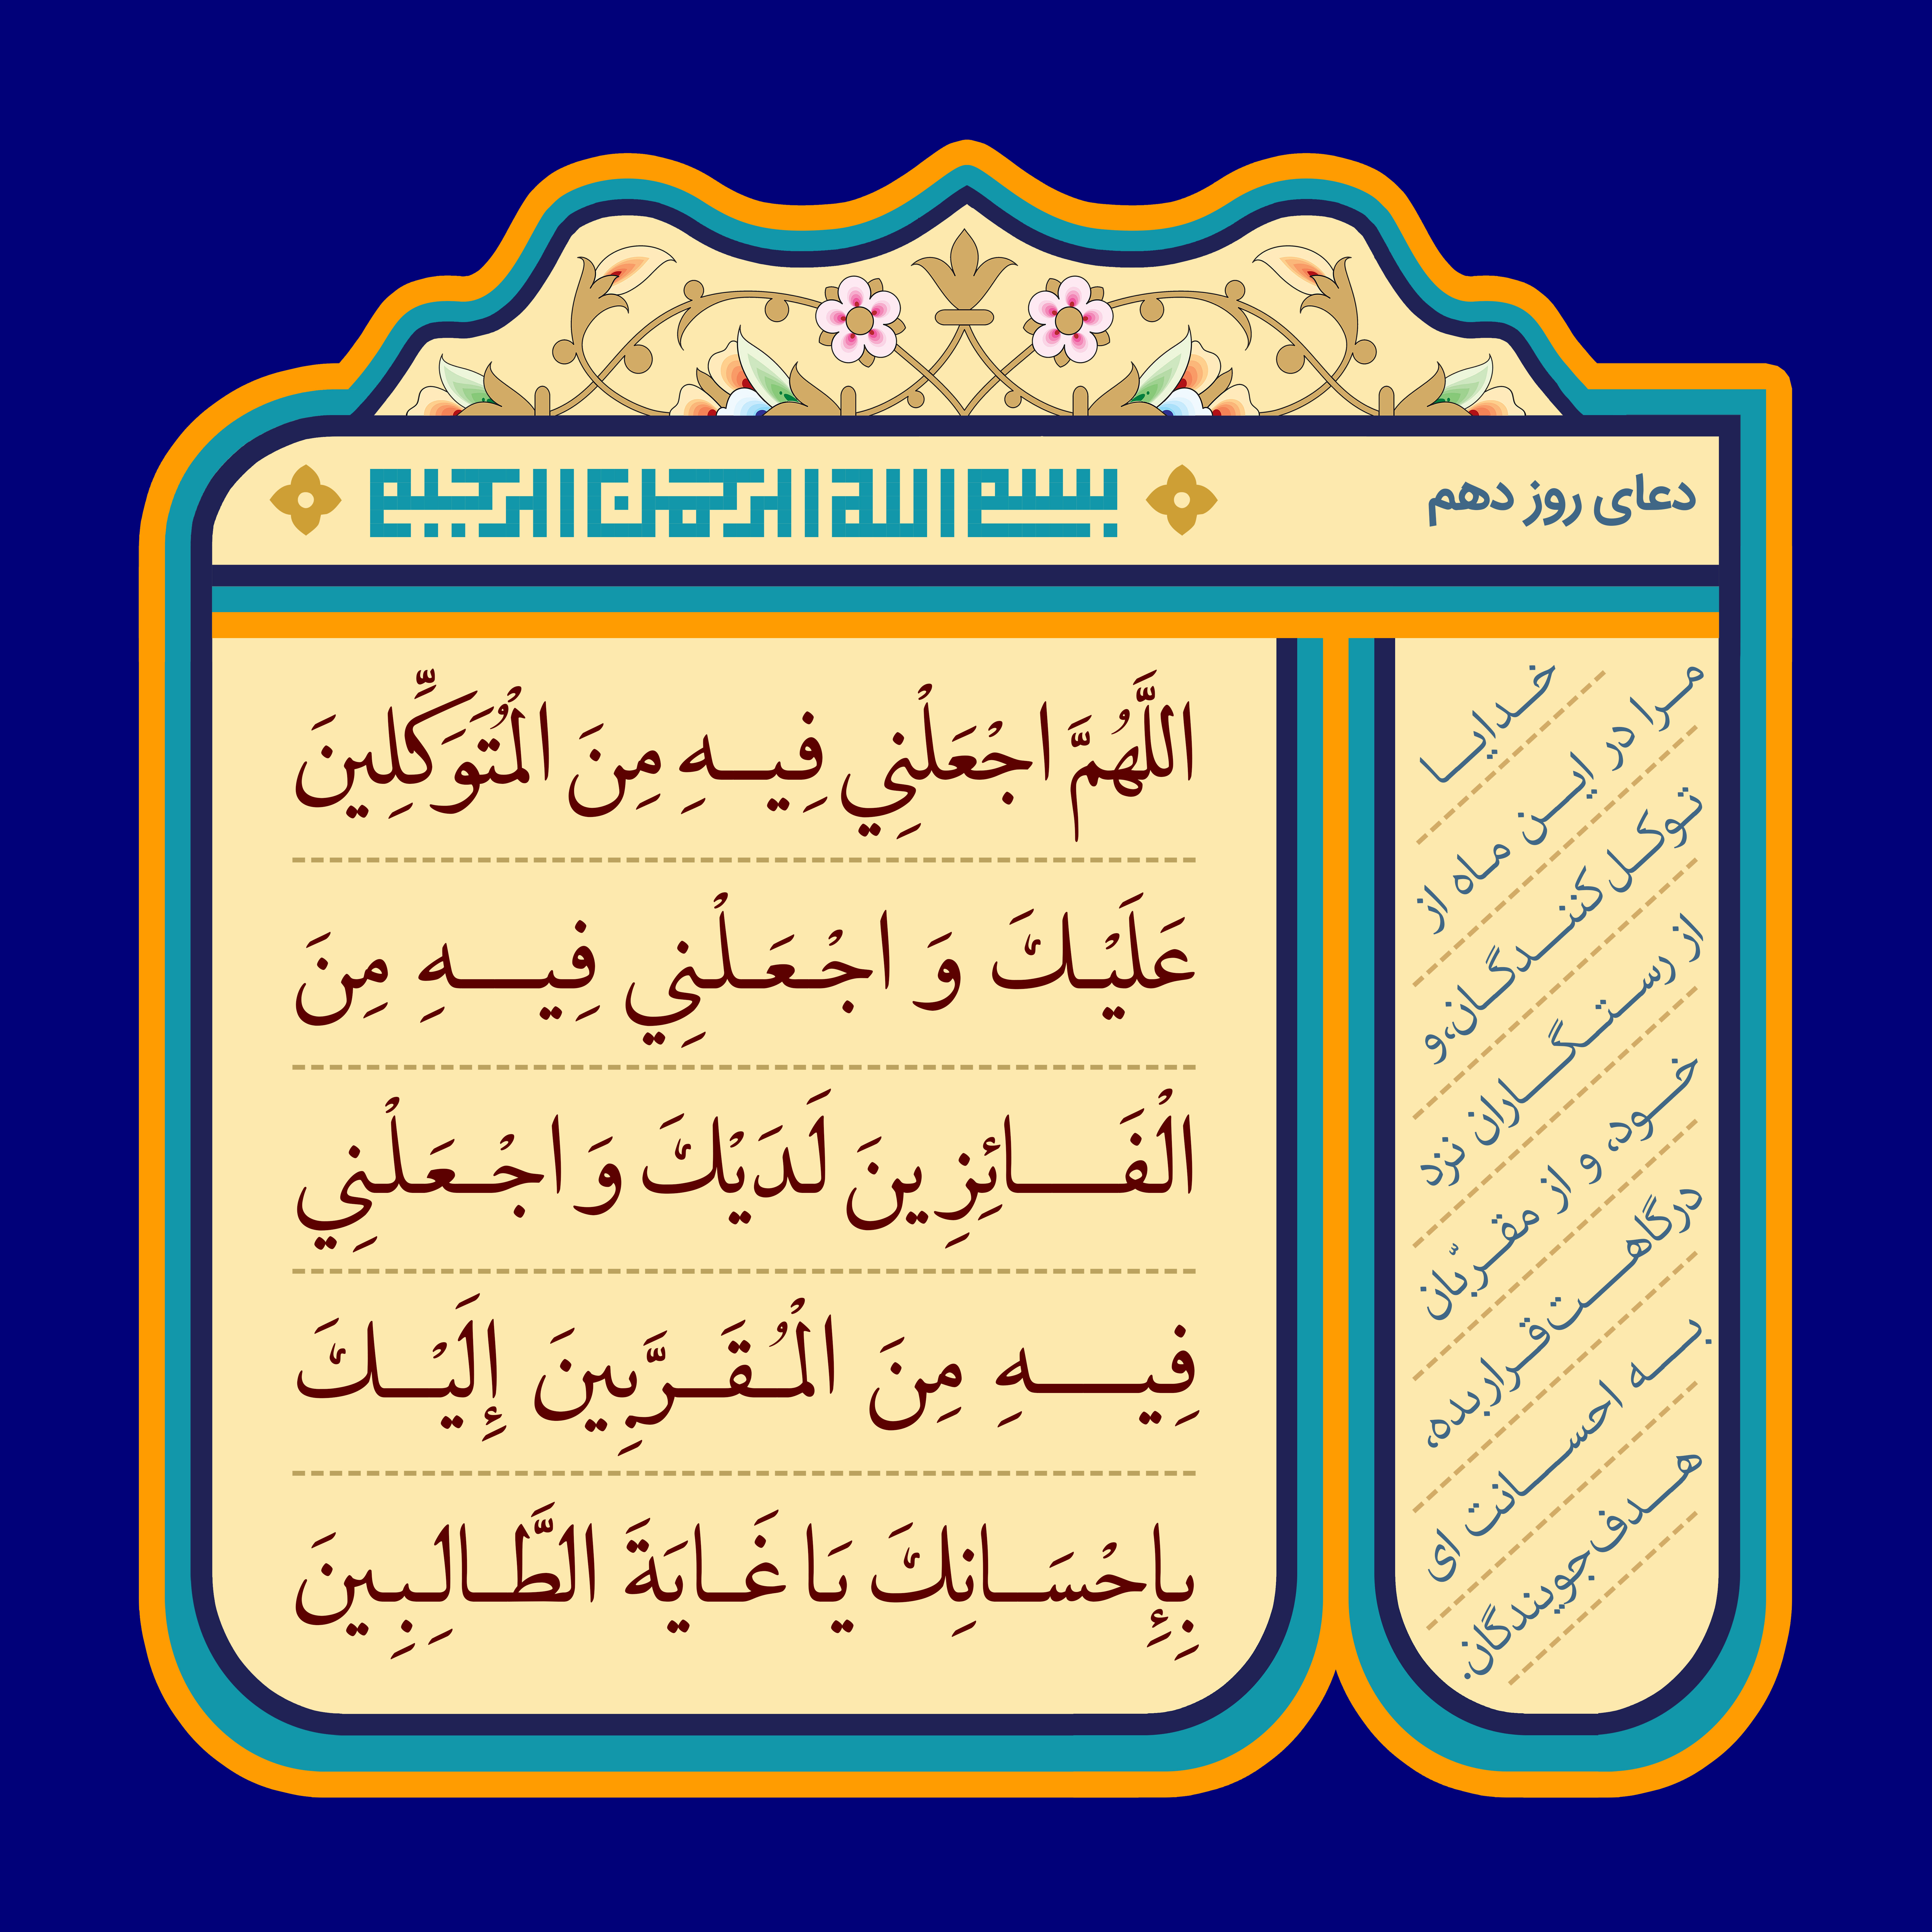 دعای روز دهم
بسم الله الرحمن الرحیم
اللَّهُمَّ اجْعَلْنِي فِيهِ مِنَ الْمُتَوَكِّلِينَ
عَلَيْكَ وَ اجْعَلْنِي فِيهِ مِنَ
الْفَائِزِينَ لَدَيْكَ وَ اجْعَلْنِي
فِيهِ مِنَ الْمُقَرَّبِينَ إِلَيْكَ
بِإِحْسَانِكَ يَا غَايَةَ الطَّالِبِينَ
خدایا
مرا در این ماه از
توکل کنندگان، و
از رستگاران نزد
خود، و از مقرّبان
درگاهت قرار بده،
به احسانت ای
هدف جویندگان.